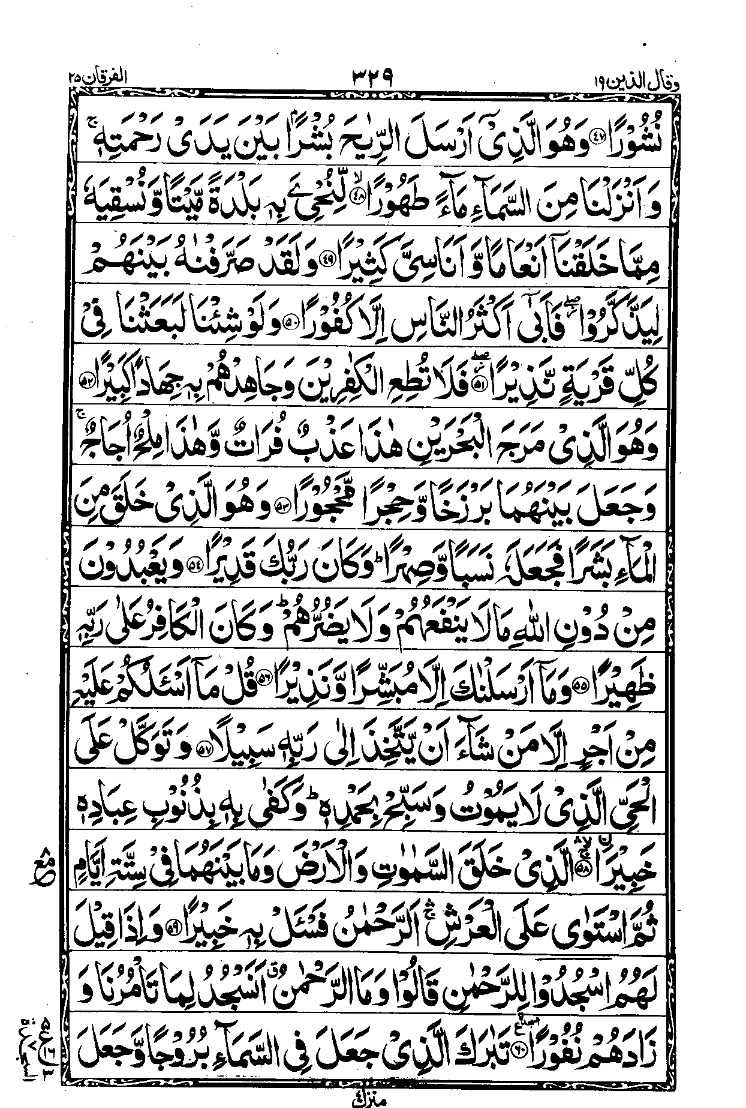 وقال الذين ١٩ ٣٢٩ الفرقان ٢٥
نُشُوْرًا ﴿٤٧﴾ وَهُوَ الَّذِيْۤ اَرْسَلَ الرِّيٰحَ بُشْرًۢا بَيْنَ يَدَيْ رَحْمَتِهٖ ۚ
وَ اَنْزَلْنَا مِنَ السَّمَآءِ مَآءً طَهُوْرًا ﴿٤٨﴾ ۙ لِّنُحْيِۦَ بِهٖ بَلْدَةً مَّيْتًا وَّ نُسْقِيَهٗ
مِمَّا خَلَقْنَاۤ اَنْعَامًا وَّ اَنَاسِيَّ كَثِيْرًا ﴿٤٩﴾ وَ لَقَدْ صَرَّفْنٰهُ بَيْنَهُمْ
لِيَذَّكَّرُوْا ۖ فَاَبٰۤى اَكْثَرُ النَّاسِ اِلَّا كُفُوْرًا ﴿٥٠﴾ وَ لَوْ شِئْنَا لَبَعَثْنَا فِيْ
كُلِّ قَرْيَةٍ نَّذِيْرًا ﴿٥١﴾ ۖ فَلَا تُطِعِ الْكٰفِرِيْنَ وَ جَاهِدْهُمْ بِهٖ جِهَادًا كَبِيْرًا ﴿٥٢﴾
وَهُوَ الَّذِيْ مَرَجَ الْبَحْرَيْنِ هٰذَا عَذْبٌ فُرَاتٌ وَّ هٰذَا مِلْحٌ اُجَاجٌ ۚ
وَ جَعَلَ بَيْنَهُمَا بَرْزَخًا وَّ حِجْرًا مَّحْجُوْرًا ﴿٥٣﴾ وَ هُوَ الَّذِيْ خَلَقَ مِنَ
الْمَآءِ بَشَرًا فَجَعَلَهٗ نَسَبًا وَّ صِهْرًا ؕ وَ كَانَ رَبُّكَ قَدِيْرًا ﴿٥٤﴾ وَ يَعْبُدُوْنَ
مِنْ دُوْنِ اللّٰهِ مَا لَا يَنْفَعُهُمْ وَ لَا يَضُرُّهُمْ ؕ وَ كَانَ الْكَافِرُ عَلٰى رَبِّهٖ
ظَهِيْرًا ﴿٥٥﴾ وَ مَاۤ اَرْسَلْنٰكَ اِلَّا مُبَشِّرًا وَّ نَذِيْرًا ﴿٥٦﴾ قُلْ مَاۤ اَسْئَلُكُمْ عَلَيْهِ
مِنْ اَجْرٍ اِلَّا مَنْ شَآءَ اَنْ يَّتَّخِذَ اِلٰى رَبِّهٖ سَبِيْلًا ﴿٥٧﴾ وَ تَوَكَّلْ عَلَى
الْحَيِّ الَّذِيْ لَا يَمُوْتُ وَ سَبِّحْ بِحَمْدِهٖ ؕ وَ كَفٰى بِهٖ بِذُنُوْبِ عِبَادِهٖ
خَبِيْرًا ﴿٥٨﴾ ۛۚ الَّذِيْ خَلَقَ السَّمٰوٰتِ وَ الْاَرْضَ وَ مَا بَيْنَهُمَا فِيْ سِتَّةِ اَيَّامٍ
ثُمَّ اسْتَوٰى عَلَى الْعَرْشِ ۛۚ اَلرَّحْمٰنُ فَسْئَلْ بِهٖ خَبِيْرًا ﴿٥٩﴾ وَ اِذَا قِيْلَ
لَهُمُ اسْجُدُوْا لِلرَّحْمٰنِ قَالُوْا وَ مَا الرَّحْمٰنُ ۗ اَنَسْجُدُ لِمَا تَاْمُرُنَا وَ
زَادَهُمْ نُفُوْرًا ﴿٦٠﴾ تَبٰرَكَ الَّذِيْ جَعَلَ فِي السَّمَآءِ بُرُوْجًا وَّ جَعَلَ
منزل ٤